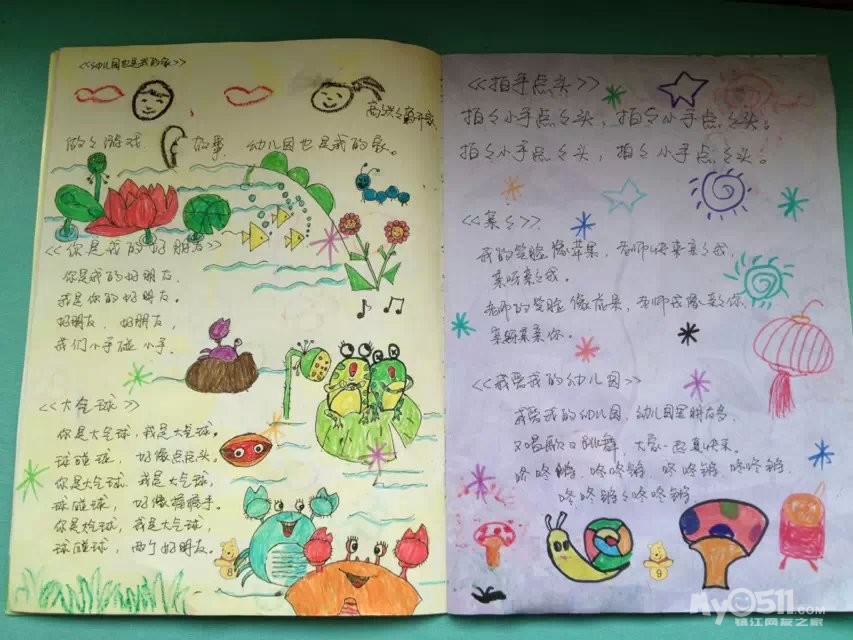 <<幼儿园也是我的家>>
高高兴兴离开家
做々游戏 故事 幼儿园也是我的家。
<<你是我的好朋友>>
你是我的好朋友,
我是你的好朋友。
好朋友, 好朋友,
我们小手碰小手.
<<大气球>>
你是大气球,我是大气球。
球碰球, 好像点点头。
你是大气球, 我是大气球,
球碰球, 好像握握手。
你是大气球, 我是大气球,
球碰球, 两个好朋友。
<<拍手点头>>
拍々小手点々头, 拍々小手点々头。
拍々小手点々头, 拍々小手点々头。
<<亲々>>
我的笑脸像苹果, 老师快来亲々我,
亲呀亲々我。
老师的笑脸像苹果, 老师我来亲々你,
亲呀亲亲你。
<<我爱我的幼儿园>>
我爱我的幼儿园, 幼儿园里朋友多,
又唱歌又跳舞, 大家一起真快乐。
咚咚锵, 咚咚锵 咚咚锵 咚咚锵.
咚咚锵々咚咚锵
8
9
My0511.com
镇江网友之家